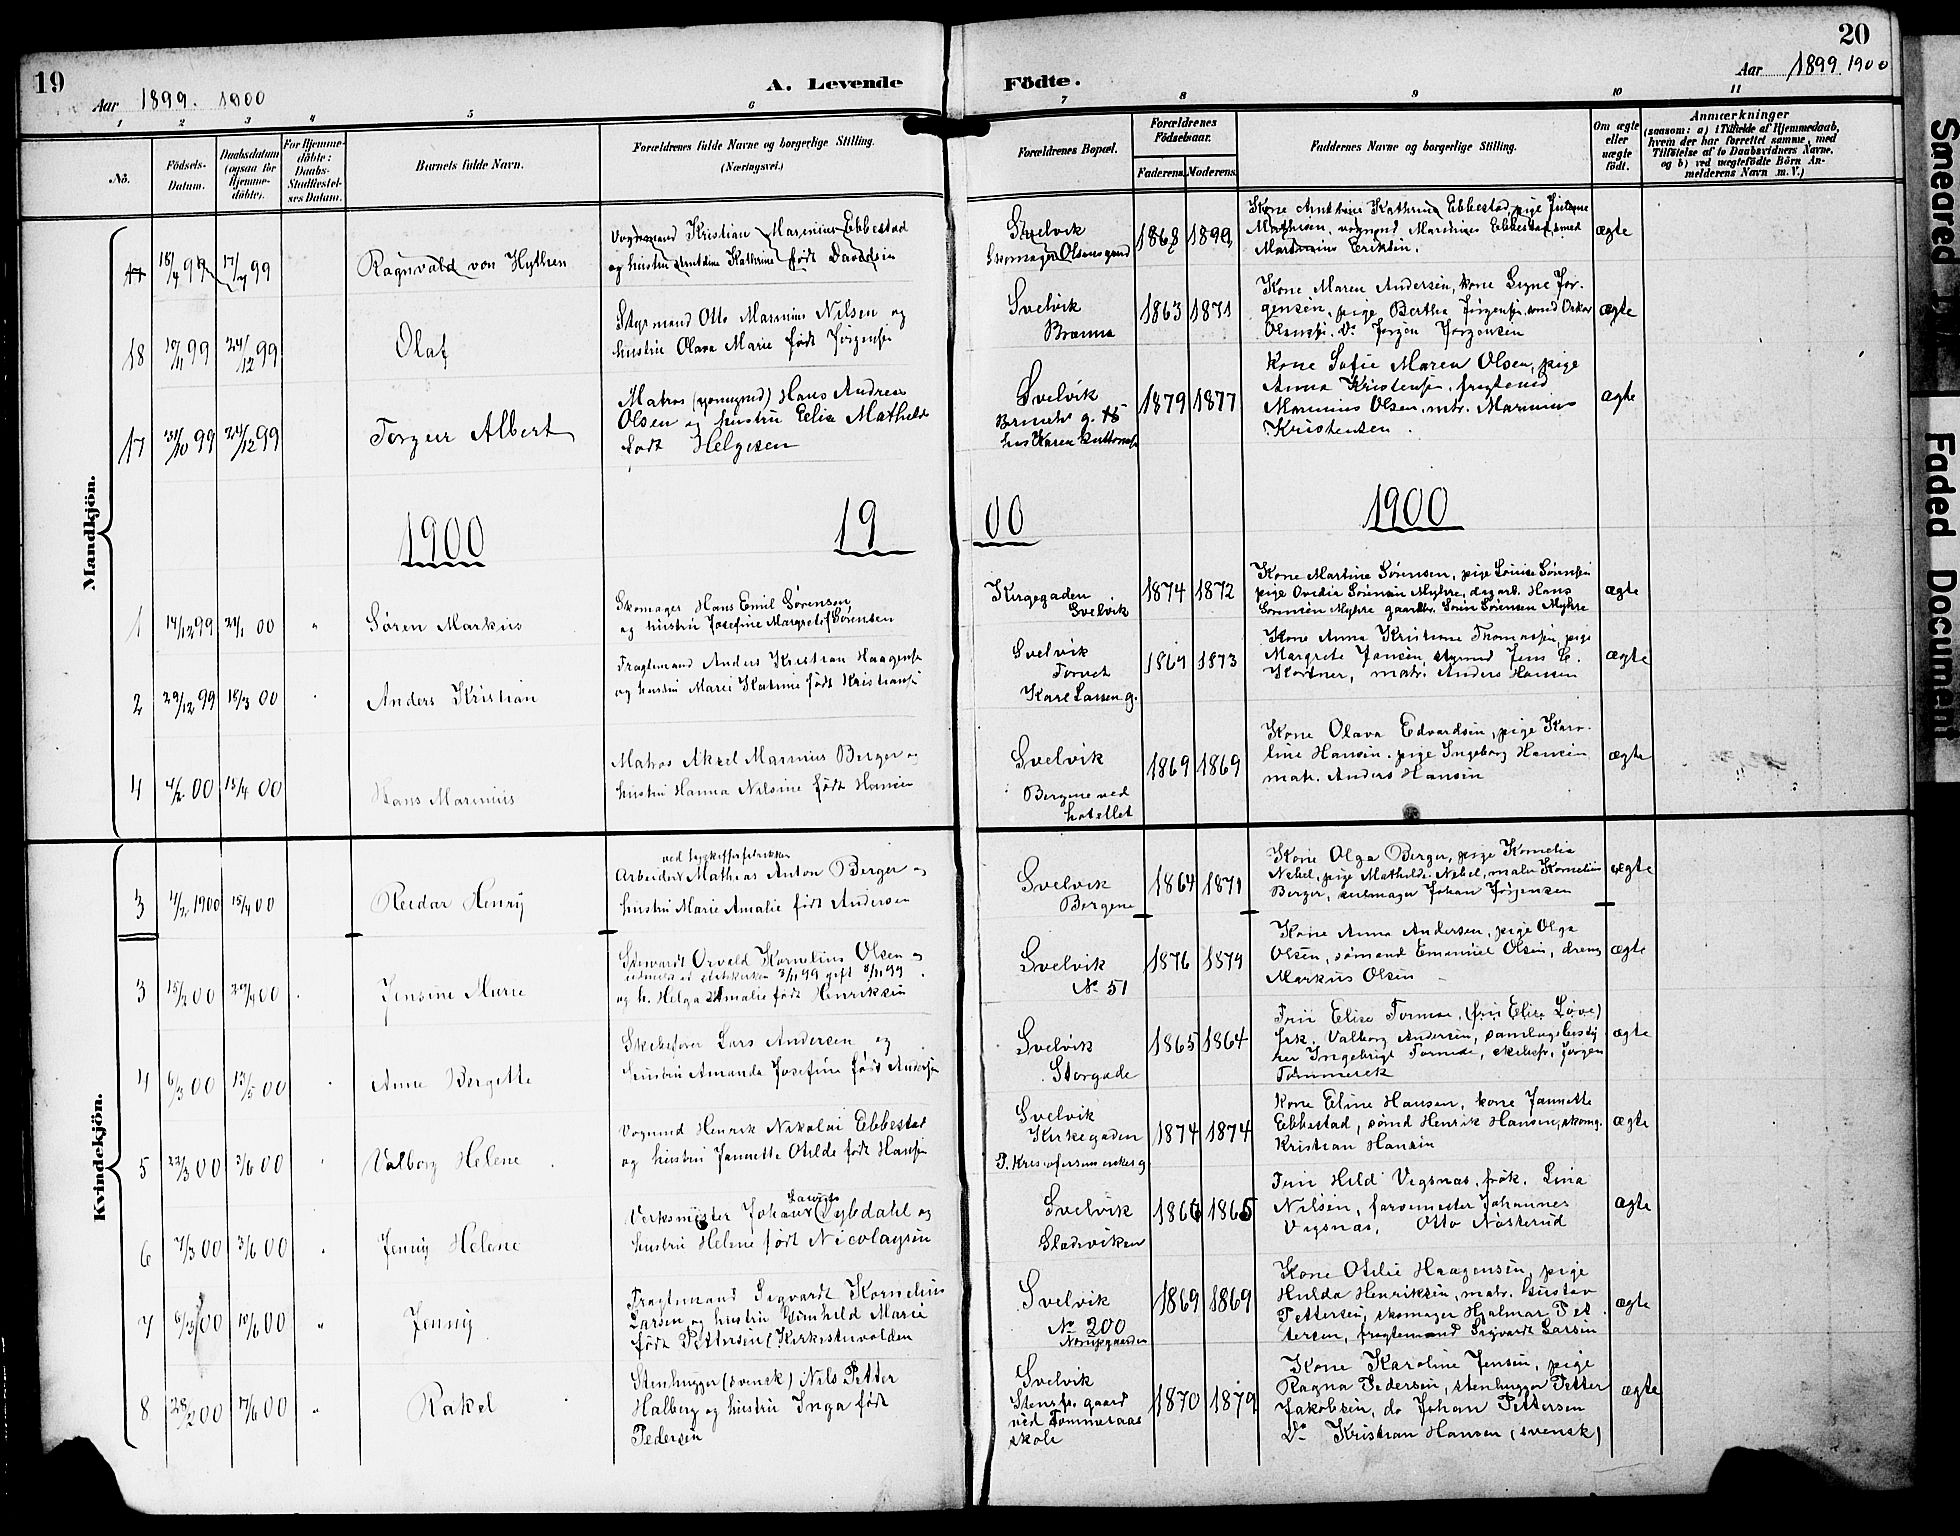 19
20
Aar 1899. 1900
A. Levende
Födte.
Aar 1899. 1900
1 2 3 4 5 6 7 8 9 10 11
No.
Födsels-
Datum.
Daabsdatum
(ogsaa for
Hjemme-
döbte).
For Hjemme-
döbte:
Daabs-
Stadfæstel-
ses Datum.
Barnets fulde Navn.
Forældrenes fulde Navne og borgerlige Stilling.
(Næringsvei.)
Forældrenes Bopæl.
Forældrenes
Födselsaar.
Faderens.
Moderens.
Faddernes Navne og borgerlige Stilling.
Om ægte
eller
uægte
födt.
Anmærkninger
(saasom: a) i Tilfælde af Hjemmedaab,
hvem der har forrettet samme, med
Tilföielse af to Daabsvidners Navne.
og b) ved uægtefödte Börn An-
melderens Navn m. V.)
Mandkjön.
17 99 17/7 99
Ragnvald von Hythen
Vognmand Kristian Marinius Ebbestad
og hustru Kathrine født Davidsen
Svelvik
Skomager Olsens gaard
1868 1899
Kone Kathrine Ebbestad, pige
vognmd Marinius Ebbestad, smed
Eriksen.
ægte
18 19/11 99 24/12 99
Olaf
Styrmand Otto Marinius Nilsen og
hustru Olava Marie født Jørgensen
Svelvik
Brenna
1863 1871
Kone Maren Andersen, kone Signe Jør-
gensen, pige Bertha Jørgensen, smed Oskar
Do Jørgen Jørgensen
ægte
17 31/10 99 24/12 99
Torgeir Albert
Matros Hans Andreas
Olsen og hustru Elise Mathilde
født Helgesen
Svelvik
hos Karen
1879 1877
Kone Sofie Maren Olsen, pige
Anna Kristensen, fragtemd
Marinius Olsen, mtr. Marinius
Kristensen.
ægte
1900
19
00
1900
1 14/12 99 21/1 00 "
Søren Markus
Skomager Hans Emil Sørensen
og hustru Josefine Margrete f. Sørensen
Kirgegaden
Svelvik
1874 1872
Kone Martine Sørensen, pige Louise Sørensen
pige Ovedia Sørensen Myhre, dagarb. Hans
Sørensen Myhre gaardbr. Søren Sørensen Myhre
ægte
2 29/12 99 18/3 00
Anders Kristian
Fragtemand Anders Kristian Haagensen
og hustru Marie Katrine født Kristiansen
Svelvik
Torvet
Karl Larsen g.
1869 1873
Kone Anna Kristiane Thomassen, pige
Margrete Jansen, styrmd Jens C.
Kortner, matr. Anders Hansen
ægte
4 4/2 00 15/4 00
Hans Marinius
Matros Aksel Marinius Berger og
hustru Hanna Nilsine født Hansen
Svelvik
Bergene ved
hotellet
1869 1869
Kone Olava Edvardsen, pige Karo-
line Hansen. pige Ingeborg Hansen
matr. Anders Hansen
ægte
Kvindekjön.
3 1/2 1900 15/4 00
Reidar Henry
Arbeider Mathias Anton Berger og
hustru Marie Amalie født Andersen
Svelvik
Bergene
1864 1871
Kone Olga Berger, pige Kornelia
Nebel, pige Mathilde Nebel, maler Kornelius
Berger, seilmager Johan Jørgensen
ægte
3 15/2 00 29/4 00
Jensine Marie
Stewardt Osvald Kornelius Olsen og
og h. Helga Amalie født Henriksen
Svelvik
No 51
1876 1879
Kone Anna Andersen, pige Olga
Olsen, sømand Emanuel Olsen, dreng
Markus Olsen
ægte
4 6/3 00 13/5 00
Anne Bergette
Skibsfører Lars Andersen og
hustru Amanda Josefine født Andersen
Svelvik
Storgade
1865 1864
Fru Elise Tormoe, (fru Elise Løve)
frk. Valborg Andersen, samlagsbesty
rer Ingebrigt Tormoe, skibsfr. Jørgen
Tømmerek
ægte
5 22/3 00 3/6 00
Valborg Helene
Vognmd Henrik Nikolai Ebbestad
og hustru Jannette Otilde født Hansen
Svelvik
Kirkegaden
1874 1874
Kone Eline Hansen, kone Jannette
Ebbestad, sømd Henrik Hansen, skomg.
Kristian Hansen
ægte
6 7/3 00 3/6 00
Jenny Helene
Verksmester Johan Dybdahl og
hustru Helene født Nicolaysen
Svelvik
Sladrviken
1866 1865
Fru Hild Vigsnæs, frøk. Lina
Nilsen, farvemester Johannes
Vigsnæs, Otto Nøsterud
ægte
7 6/3 00 10/6 00 "
Jenny
Fragtemand Sigvardt Kornelius
Larsen og hustru Gunhild Marie
født Pettersen (Kirkestuvolden
Svelvik
No 200
1869 1869
Kone Otilie Haagensen, pige
Hulda Henriksen, matr. Gustav
Pettersen, skomager Hjalmar Pet
tersen, fragtemand Sigvardt Larsen
ægte
8 28/2 00 17/6 00 "
Rakel
Stenhugger (svensk) Nils Petter
Halberg og hustru Inga født
Pedersen
Svelvik
gaard
ved Tømmeraas
skole
1870 1879
Kone Karoline Jensen, pige
Ragna Pedersen, stenhugger Petter
Jakobsen, do Johan Pettersen
Do Kristian Hansen (svensk)
ægte
Smeared
Faded Document